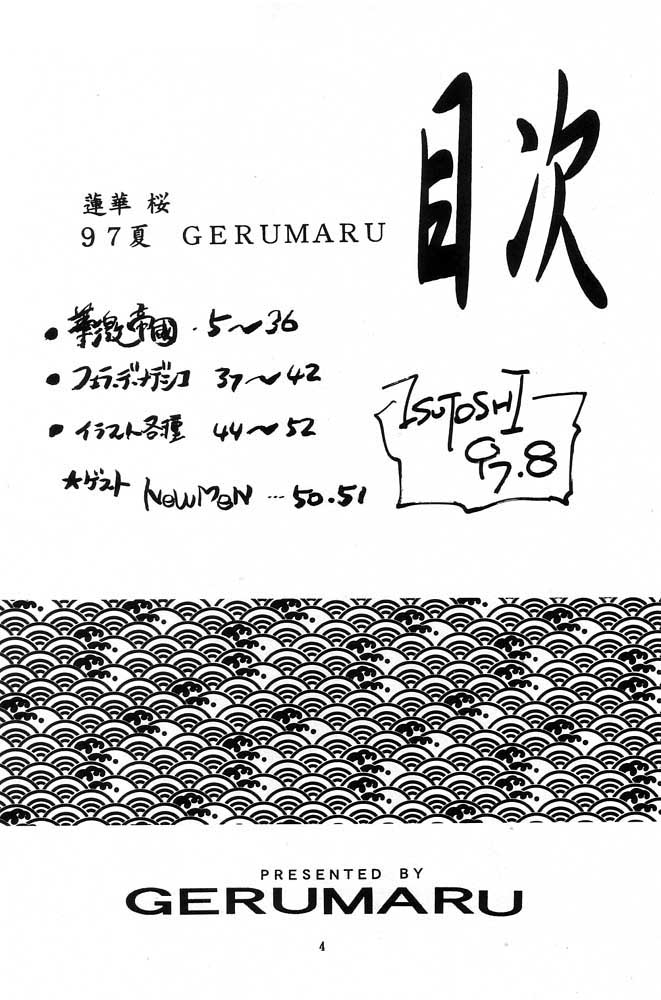 目次
蓮華 桜
97夏 GERUMARU
• 華激帝國 ・5〜36
• フェラ・デ・ナデシコ 37〜42
• イラスト各種 44〜52
★ゲスト NEWMEN … 50.51
ISUTOSHI
97.8
PRESENTED BY
GERUMARU
4